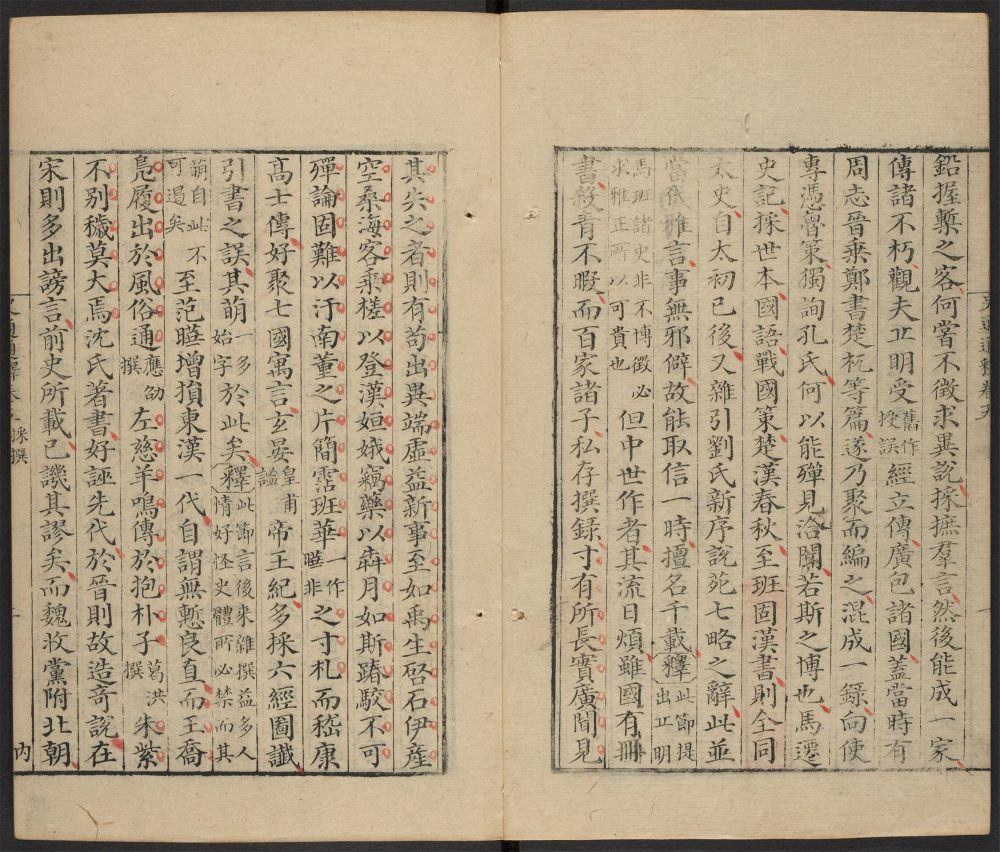 鉛握槧之客何嘗不徵求異說採摭羣言然後能成一家
傳諸不朽觀夫丘明受舊作授誤經立傳廣包諸國蓋當時有
周志晉乘鄭書楚杌等篇遂乃聚而編之混成一錄向使
專憑魯策獨詢孔氏何以能殫見洽聞若斯之博也馬遷
史記採世本國語戰國策楚漢春秋至班固漢書則全同
太史自太初已後又雜引劉氏新序說苑七略之辭此並
當代雅言事無邪僻故能取信一時擅名千載釋此節提出丘明
馬班諸史非不博徵必求雅正所以可貴也但中世作者其流日煩雖國有冊
書殺青不暇而百家諸子私存撰録寸有所長實廣聞見
其失之者則有苟出異端虛益新事至如禹生啓石伊產
空桑海客乘槎以登漢姮娥竊藥以犇月如斯踳駁不可
殫論固難以汙南董之片簡霑班華一作曄非之寸札而嵇康
高士傳好聚七國寓言玄晏皇甫謐帝王紀多採六經圖讖
引書之誤其萌一多始字於此矣釋此節言後來雜撰益多人情好怪史體所必禁而其
萌自此不可遏矣至范曄增損東漢一代自謂無慙良直而王喬
鳧履出於風俗通應劭撰左慈羊鳴傳於抱朴子葛洪撰朱紫
不別穢莫大焉沈氏著書好誣先代於晉則故造奇說在
宋則多出謗言前史所載已譏其謬矣而魏收黨附北朝
史通通釋卷五
採撰
内